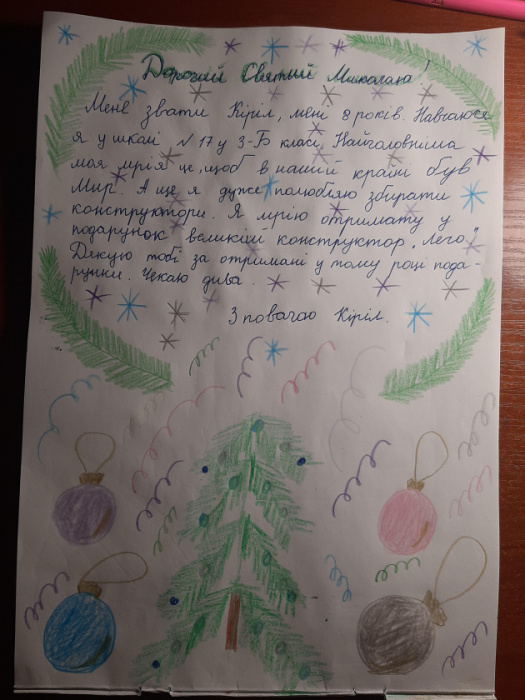 Дорогий Святий Миколаю!
Мене звати Кіріл, мені 8 років. Навчаюся
я у школі №17 у 3-Б класі. Найголовніша
моя мрія це, щоб в нашій країні був
Мир. А ще я дуже полюбляю збирати
конструктори. Я мрію отримати у
подарунок великий конструктор "Лего".
Дякую тобі за отримані у тому році пода-
рунки. Чекаю дива.
З повагою Кіріл.